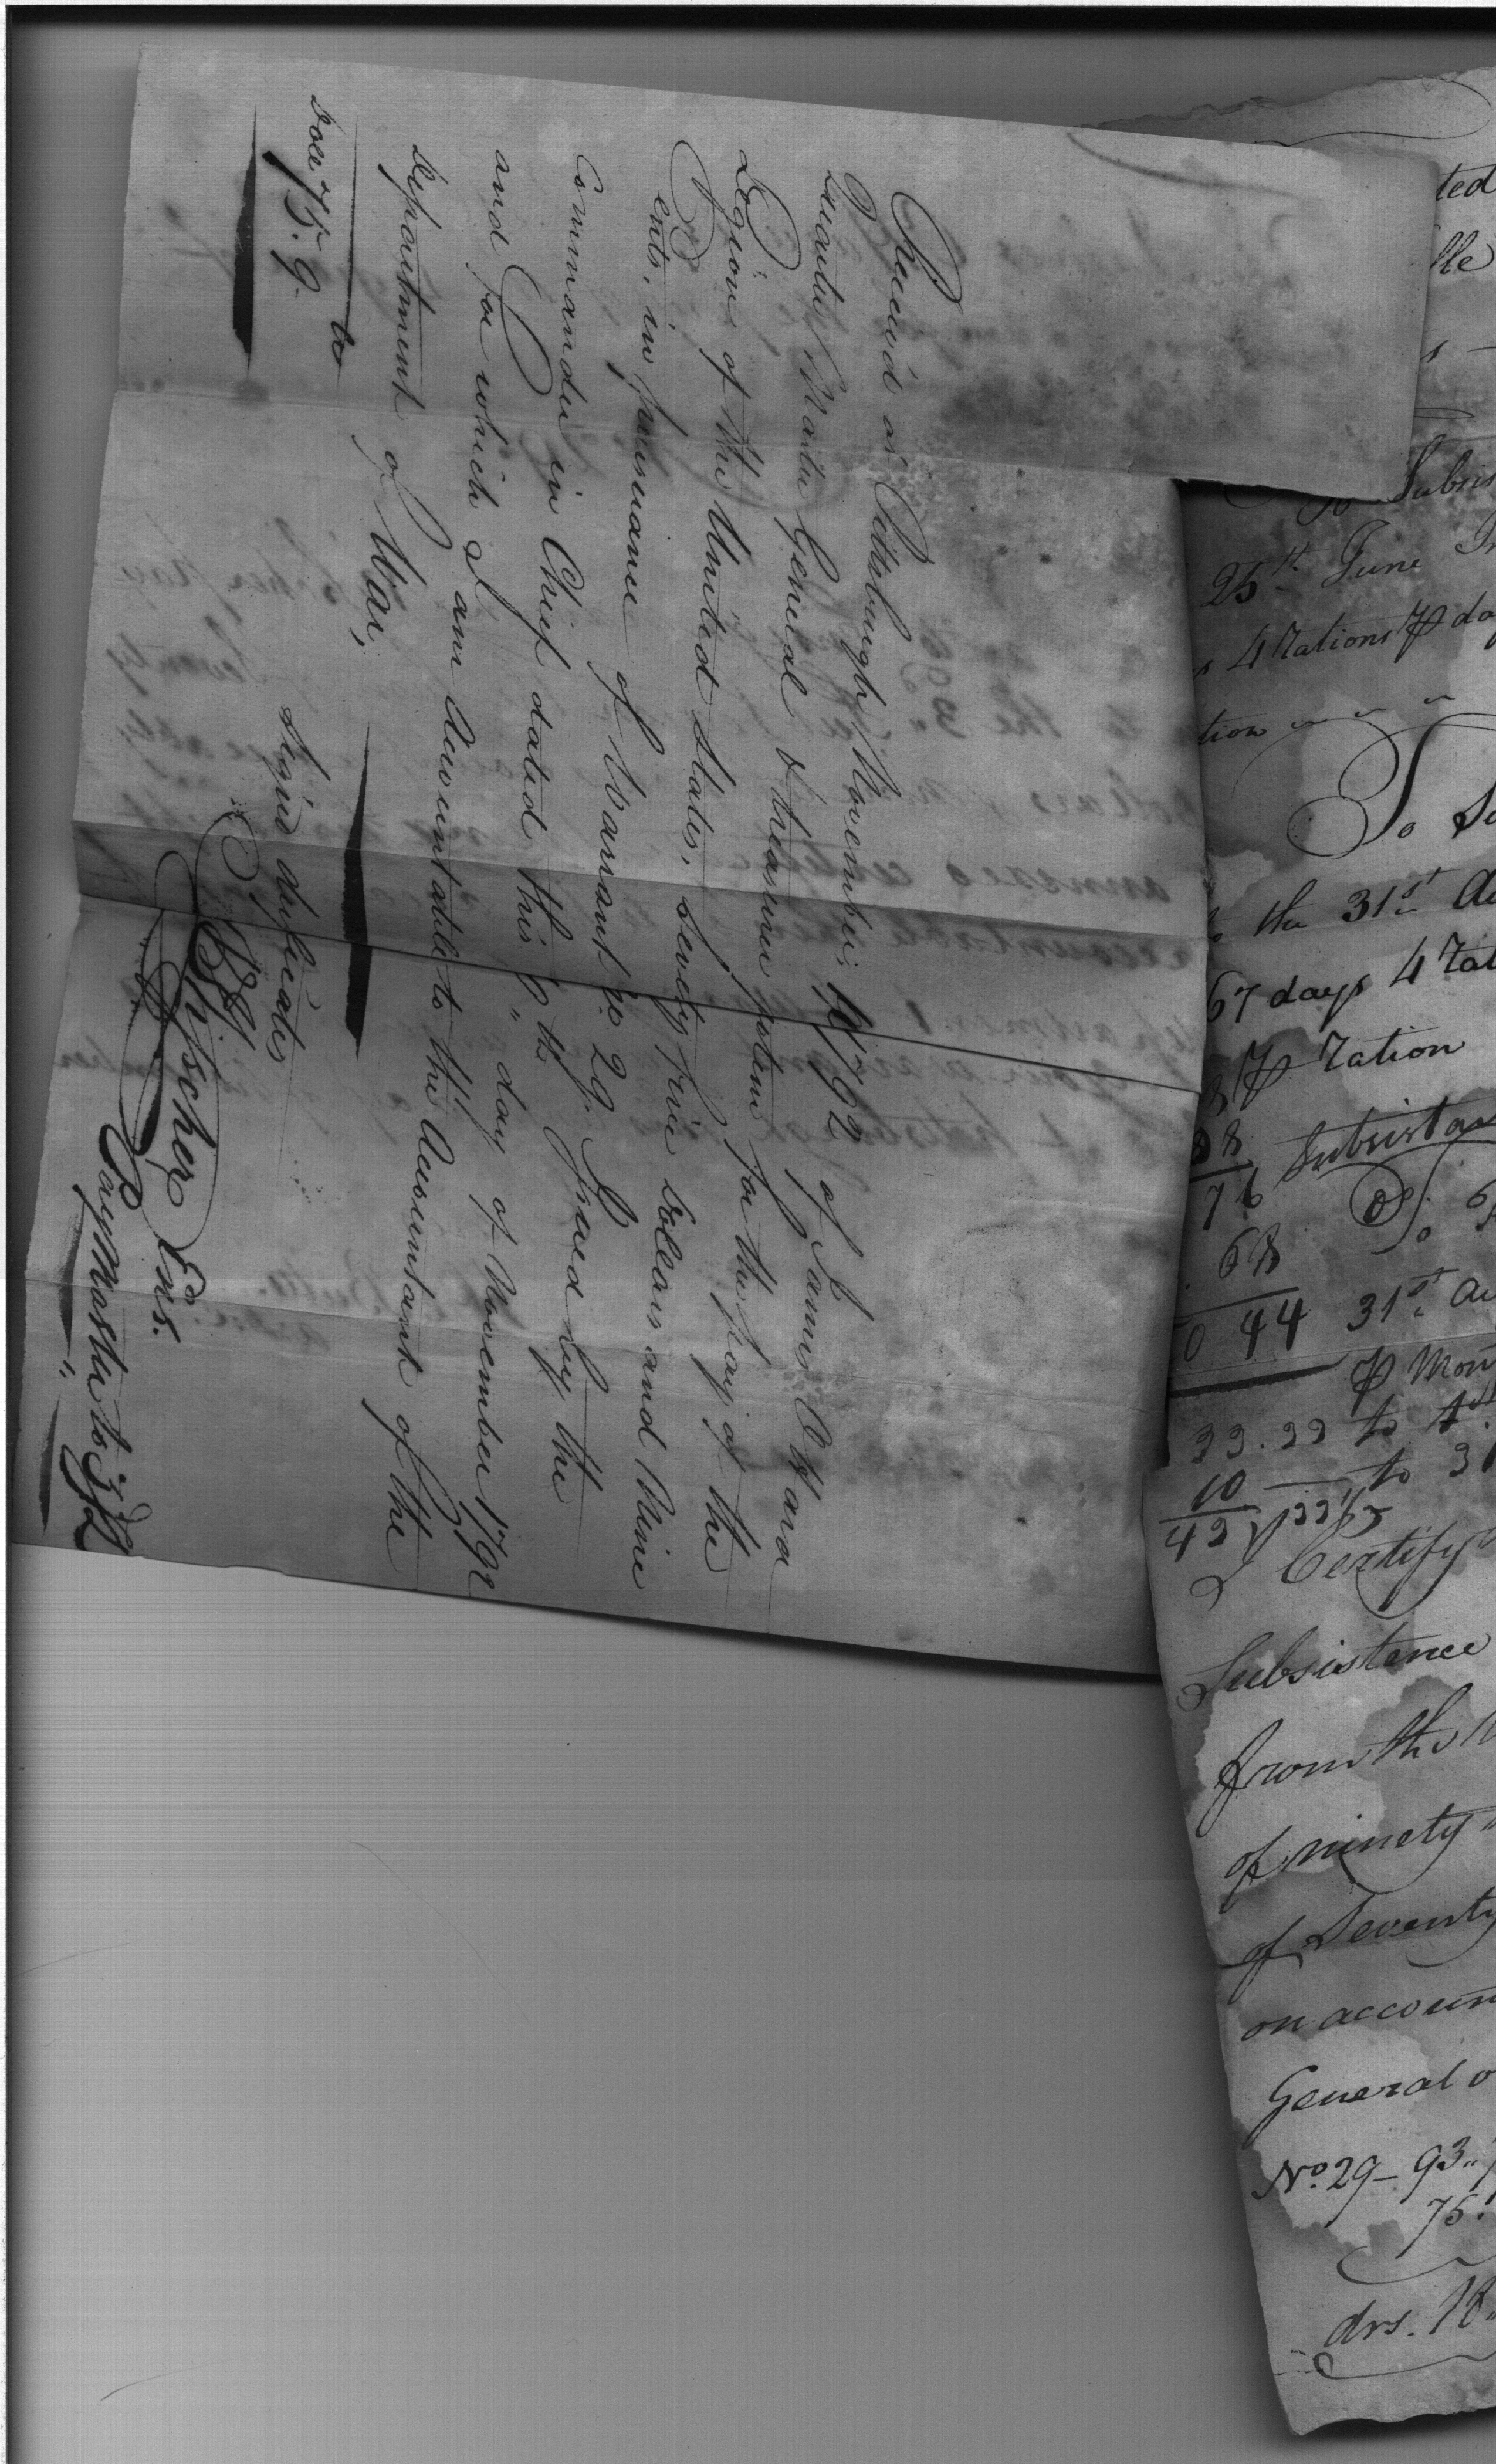 Receiv'd at Pittsburgh November 10 1792 of James O'Hara
Quarter Master General & treasurer protem for the pay of the
Legion of the United States, seventy five Dollars and Nine
Cents, in pursuance of Warrant No 29. Issued by the
Commander in Chief dated this 9th day of November 1792
and for which I am Accountable to the Accountant of the
Department of War,
Signd duplicates
Dolrs 75.9
Ens.
PayMaster to 3d
ted
lle
Subsis
25th June
4 Rations ⅌ da
tion
To Su
to the 31st Au
67 days 4 Rat
⅌ Ration
88
76 Subsistan
Do
68
0 44 31st Au
⅌ Mon
33.33 to 1st
10 to 31
43
I Certify
Subsistence
from the
of ninety
of Seventy
on accoun
General o
No. 29 - 93"
75.
drs. 18"